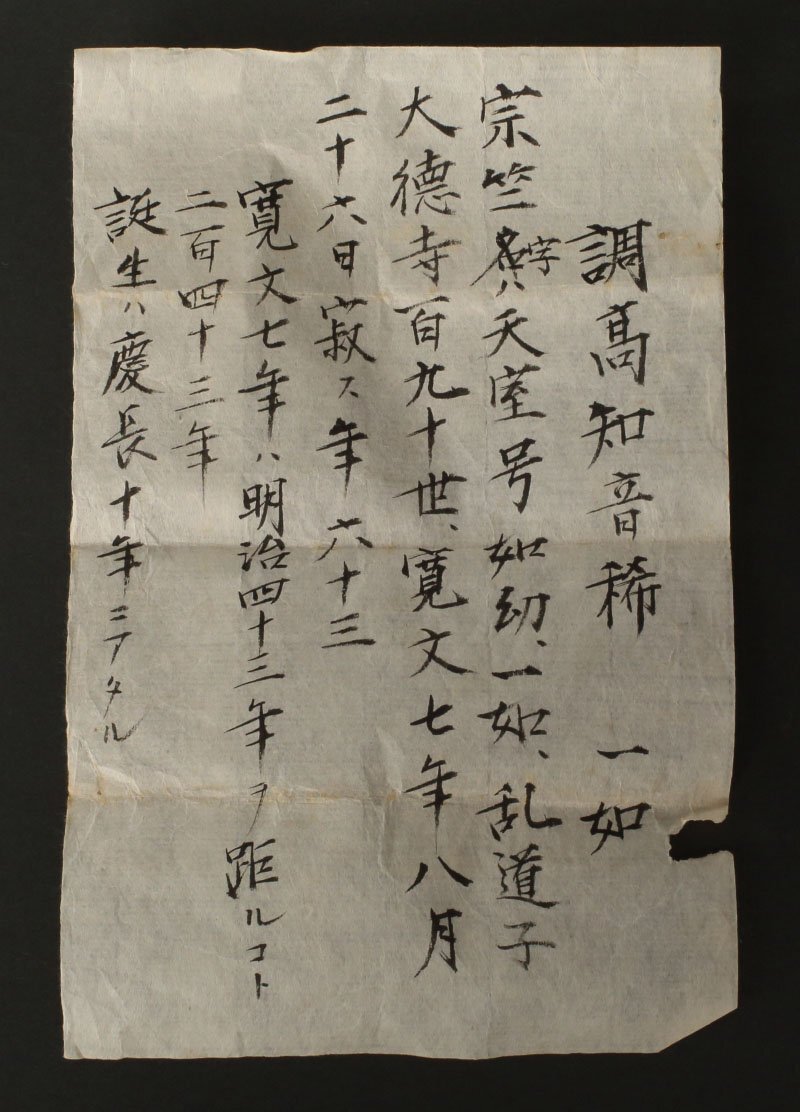 調高知音稀 一如
宗竺字ハ天室号如幻、一如、乱道子
大德寺百九十世、寛文七年八月
二十六日寂ス年六十三
寛文七年ハ明治四十三年ヲ距ルコト
二百四十三年
誕生ハ慶長十年ニアタル